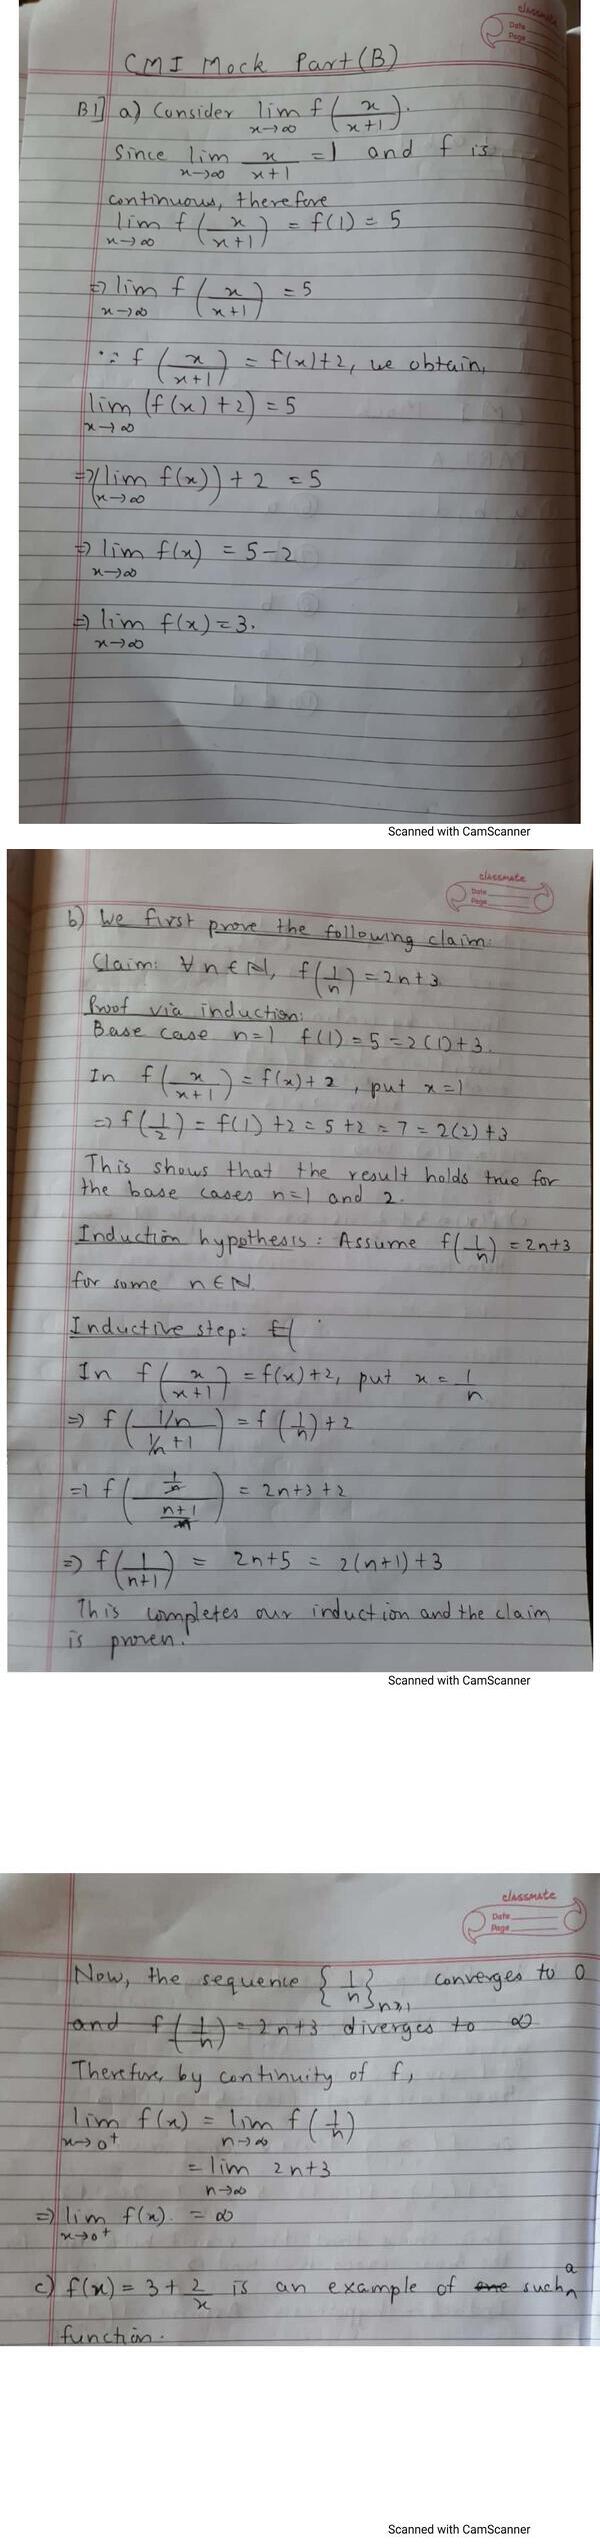 classmate
Date
Page
CMI Mock Part (B)
B1] a) Consider lim x→∞ f(x/(x+1)).
Since lim x→∞ x/(x+1) = 1 and f is
continuous, therefore
lim x→∞ f(x/(x+1)) = f(1) = 5
⇒ lim x→∞ f(x/(x+1)) = 5
∵ f(x/(x+1)) = f(x)+2, we obtain,
lim x→∞ (f(x)+2) = 5
⇒ (lim x→∞ f(x)) + 2 = 5
⇒ lim x→∞ f(x) = 5-2
⇒ lim x→∞ f(x) = 3.
Scanned with CamScanner
classmate
Date
Page
b) We first prove the following claim:
Claim: ∀ n ∈ ℕ, f(1/n) = 2n+3
Proof via induction:
Base case n=1 f(1) = 5 = 2(1)+3.
In f(x/(x+1)) = f(x)+2, put x=1
⇒ f(1/2) = f(1)+2 = 5+2 = 7 = 2(2)+3
This shows that the result holds true for
the base cases n=1 and 2.
Induction hypothesis: Assume f(1/n) = 2n+3
for some n ∈ ℕ.
Inductive step: f(
In f(x/(x+1)) = f(x)+2, put x = 1/n
⇒ f((1/n)/(1/n+1)) = f(1/n)+2
⇒ f((1/n)/((n+1)/n)) = 2n+3+2
⇒ f(1/(n+1)) = 2n+5 = 2(n+1)+3
This completes our induction and the claim
is proven.
Scanned with CamScanner
classmate
Date
Page
Now, the sequence {1/n}n≥1 converges to 0
and f(1/n) = 2n+3 diverges to ∞
Therefore, by continuity of f,
lim x→0+ f(x) = lim n→∞ f(1/n)
= lim n→∞ 2n+3
⇒ lim x→0+ f(x) = ∞
c) f(x) = 3 + 2/x is an example of one such a
function.
Scanned with CamScanner